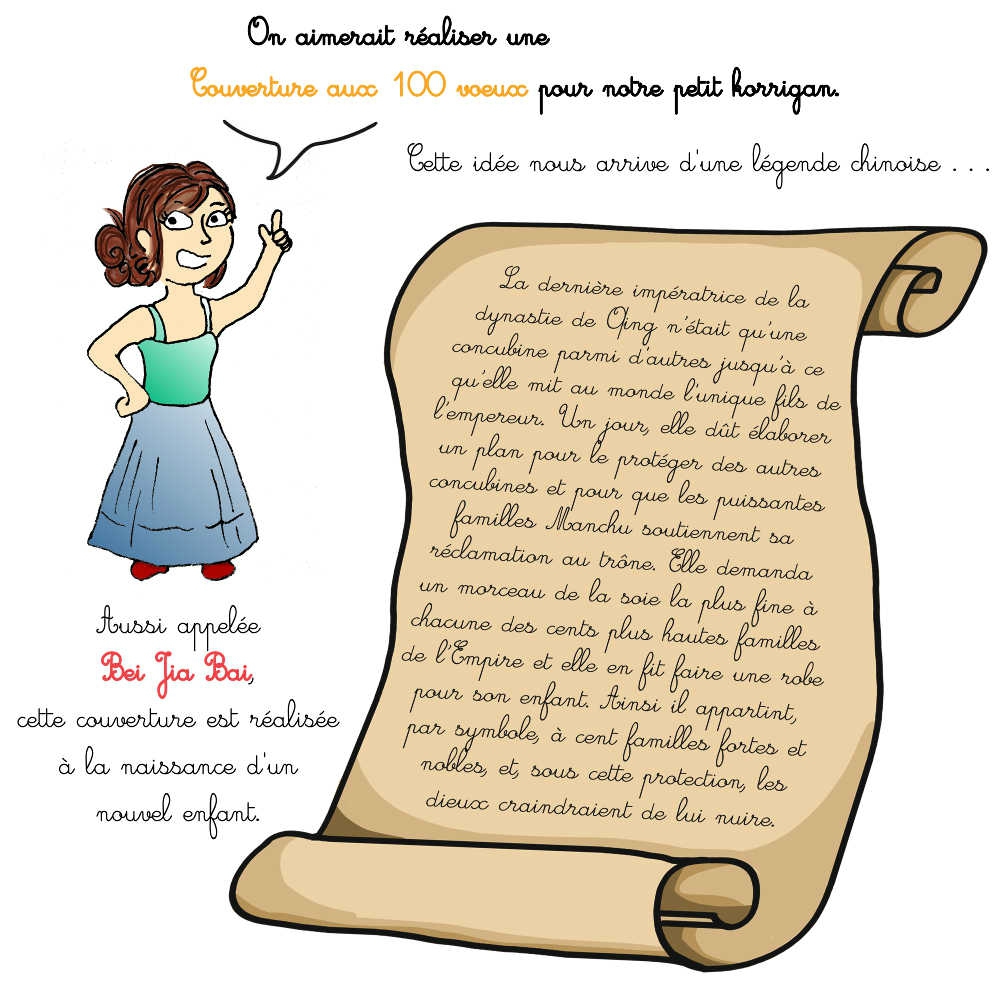 On aimerait réaliser une
Couverture aux 100 voeux pour notre petit korrigan.
Cette idée nous arrive d'une légende chinoise . . .
La dernière impératrice de la
dynastie de Qing n'était qu'une
concubine parmi d'autres jusqu'à ce
qu'elle mit au monde l'unique fils de
l'empereur. Un jour, elle dût élaborer
un plan pour le protéger des autres
concubines et pour que les puissantes
familles Manchu soutiennent sa
réclamation au trône. Elle demanda
un morceau de la soie la plus fine à
chacune des cents plus hautes familles
de l'Empire et elle en fit faire une robe
pour son enfant. Ainsi il appartint,
par symbole, à cent familles fortes et
nobles, et, sous cette protection, les
dieux craindraient de lui nuire.
Aussi appelée
Bei Jia Bai,
cette couverture est réalisée
à la naissance d'un
nouvel enfant.